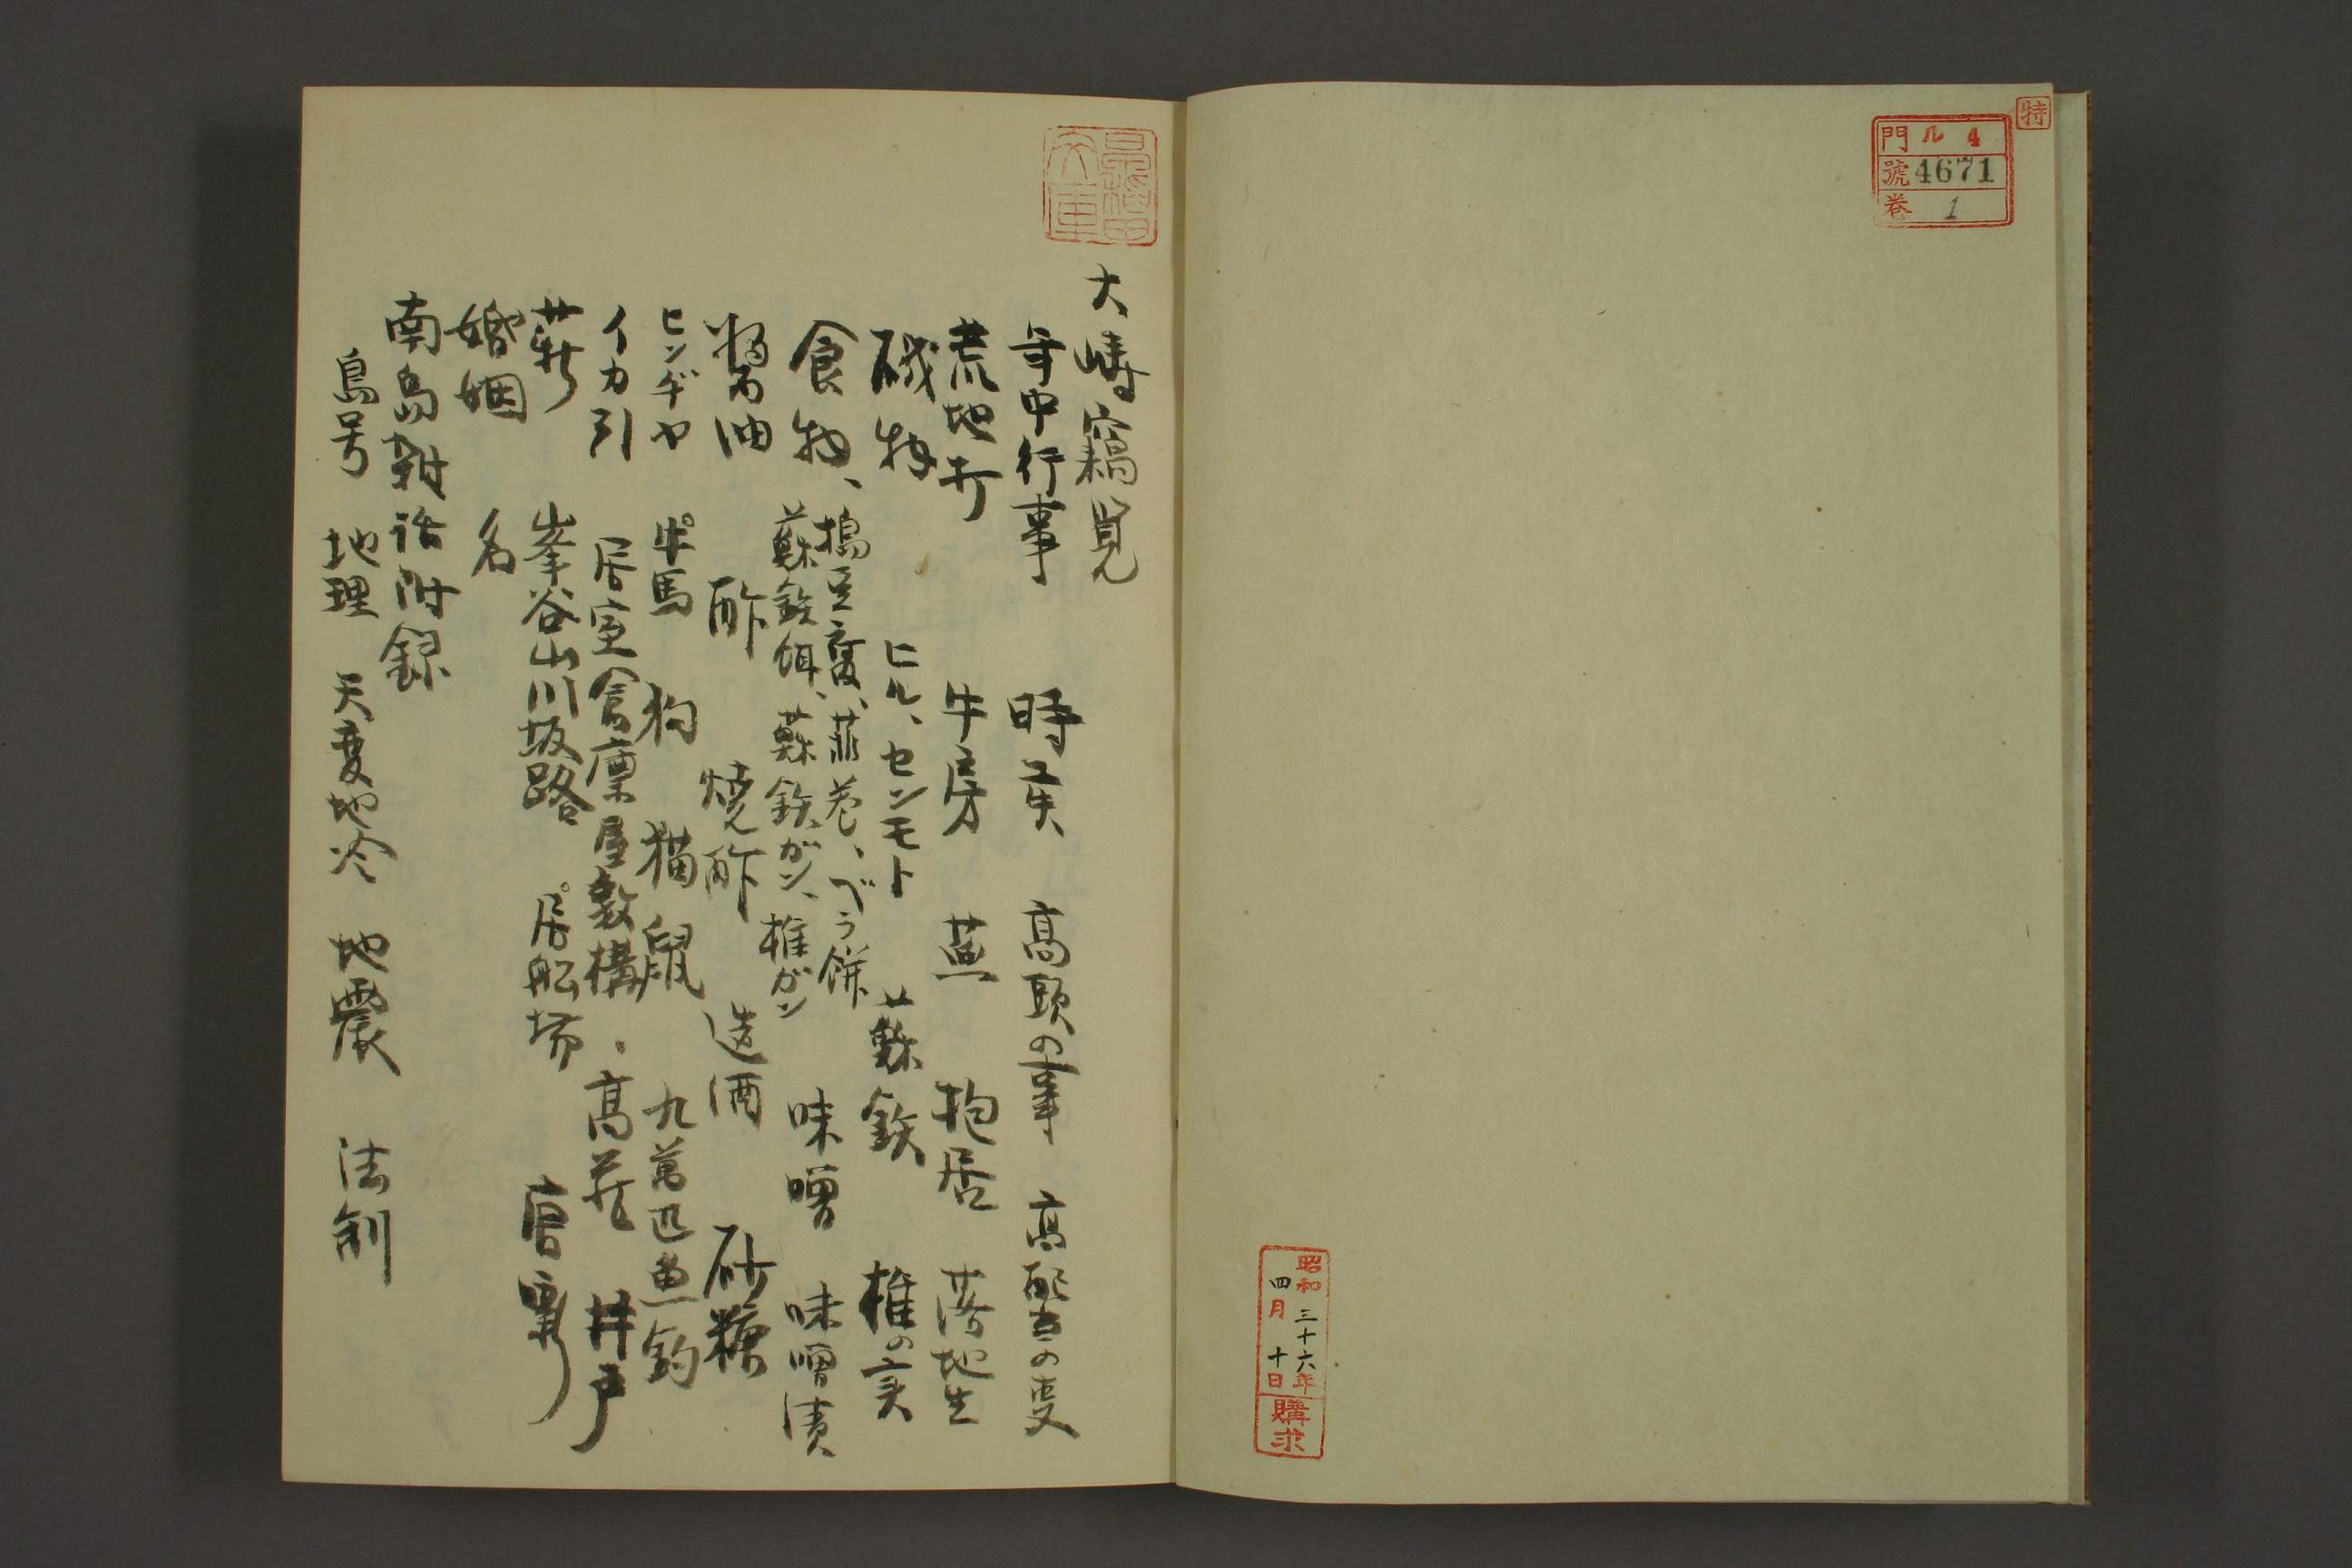 特
門 ル 4
號 4671
卷 1
昭和 三十六年
四月 十日
購求
大嶹竊覧
年中行事 時矦 高頭の事 高配當の叓
荒地于 牛房 蕉 抱居 落地生
磯物 ヒル、センモト 蘇鉄 椎の実
食物、 搗豆腐、菲巻、ベラ餅、
蘇鉄餌、蘇鉄ガン、椎ガン 味噌 味噌漬
醤油 酢 焼酢 造酒 砂糖
ヒンヂヤ 牛馬 狗 猫 鼠 九萬匹魚釣
イカ引 居室 倉廩 屋敷構 高蔵 井戸
薪 峯谷山川坂路 居船場
婚姻 名
南島雑話附録
島号 地理 天変地冷 地震 法制